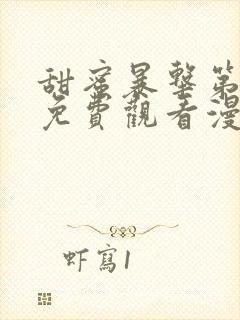 甜蜜暴擊第
免費觀看漫
虾寫1